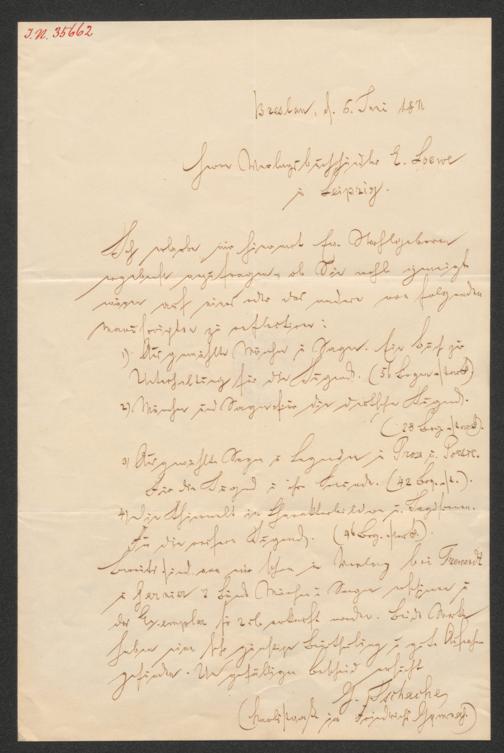 I.N. 35662
Breslau, d. 6. Juni 1871
Herrn Verlagsbuchhändler E. Loewe
in Leipzig.
Ich erlaube mir hiermit Ew. Wohlgeboren
ergebenst anzufragen, ob Sie wohl geneigt
wären auf eines oder das andere von folgenden
Manuscripten zu reflectiren:
1) Ausgewählte Märchen u Sagen. Ein Buch zur
Unterhaltung für die Jugend. (Bogen stark)
2) Märchen und Sagen für die deutsche Jugend.
(28 Bog. stark).
3) Ausgewählte Sagen u Legenden in Prosa u. Poesie.
Für die Jugend u ihre Freunde. (42 Bog. st.).
4) Die Thierwelt in Charakterbildern u.
Für die reifere Jugend. (46 Bog. stark).
Bereits sind von mir schon im Verlag bei Trewendt
u 2 Bände Märchen u Sagen erschienen u
das Exemplar für verkauft worden. Beide Werke
haben eine sehr günstige Beurtheilung u gute Aufnahme
gefunden. Um gefälligen Bescheid ersucht
G. Tschache,
(am Friedrichs Gymnas.)